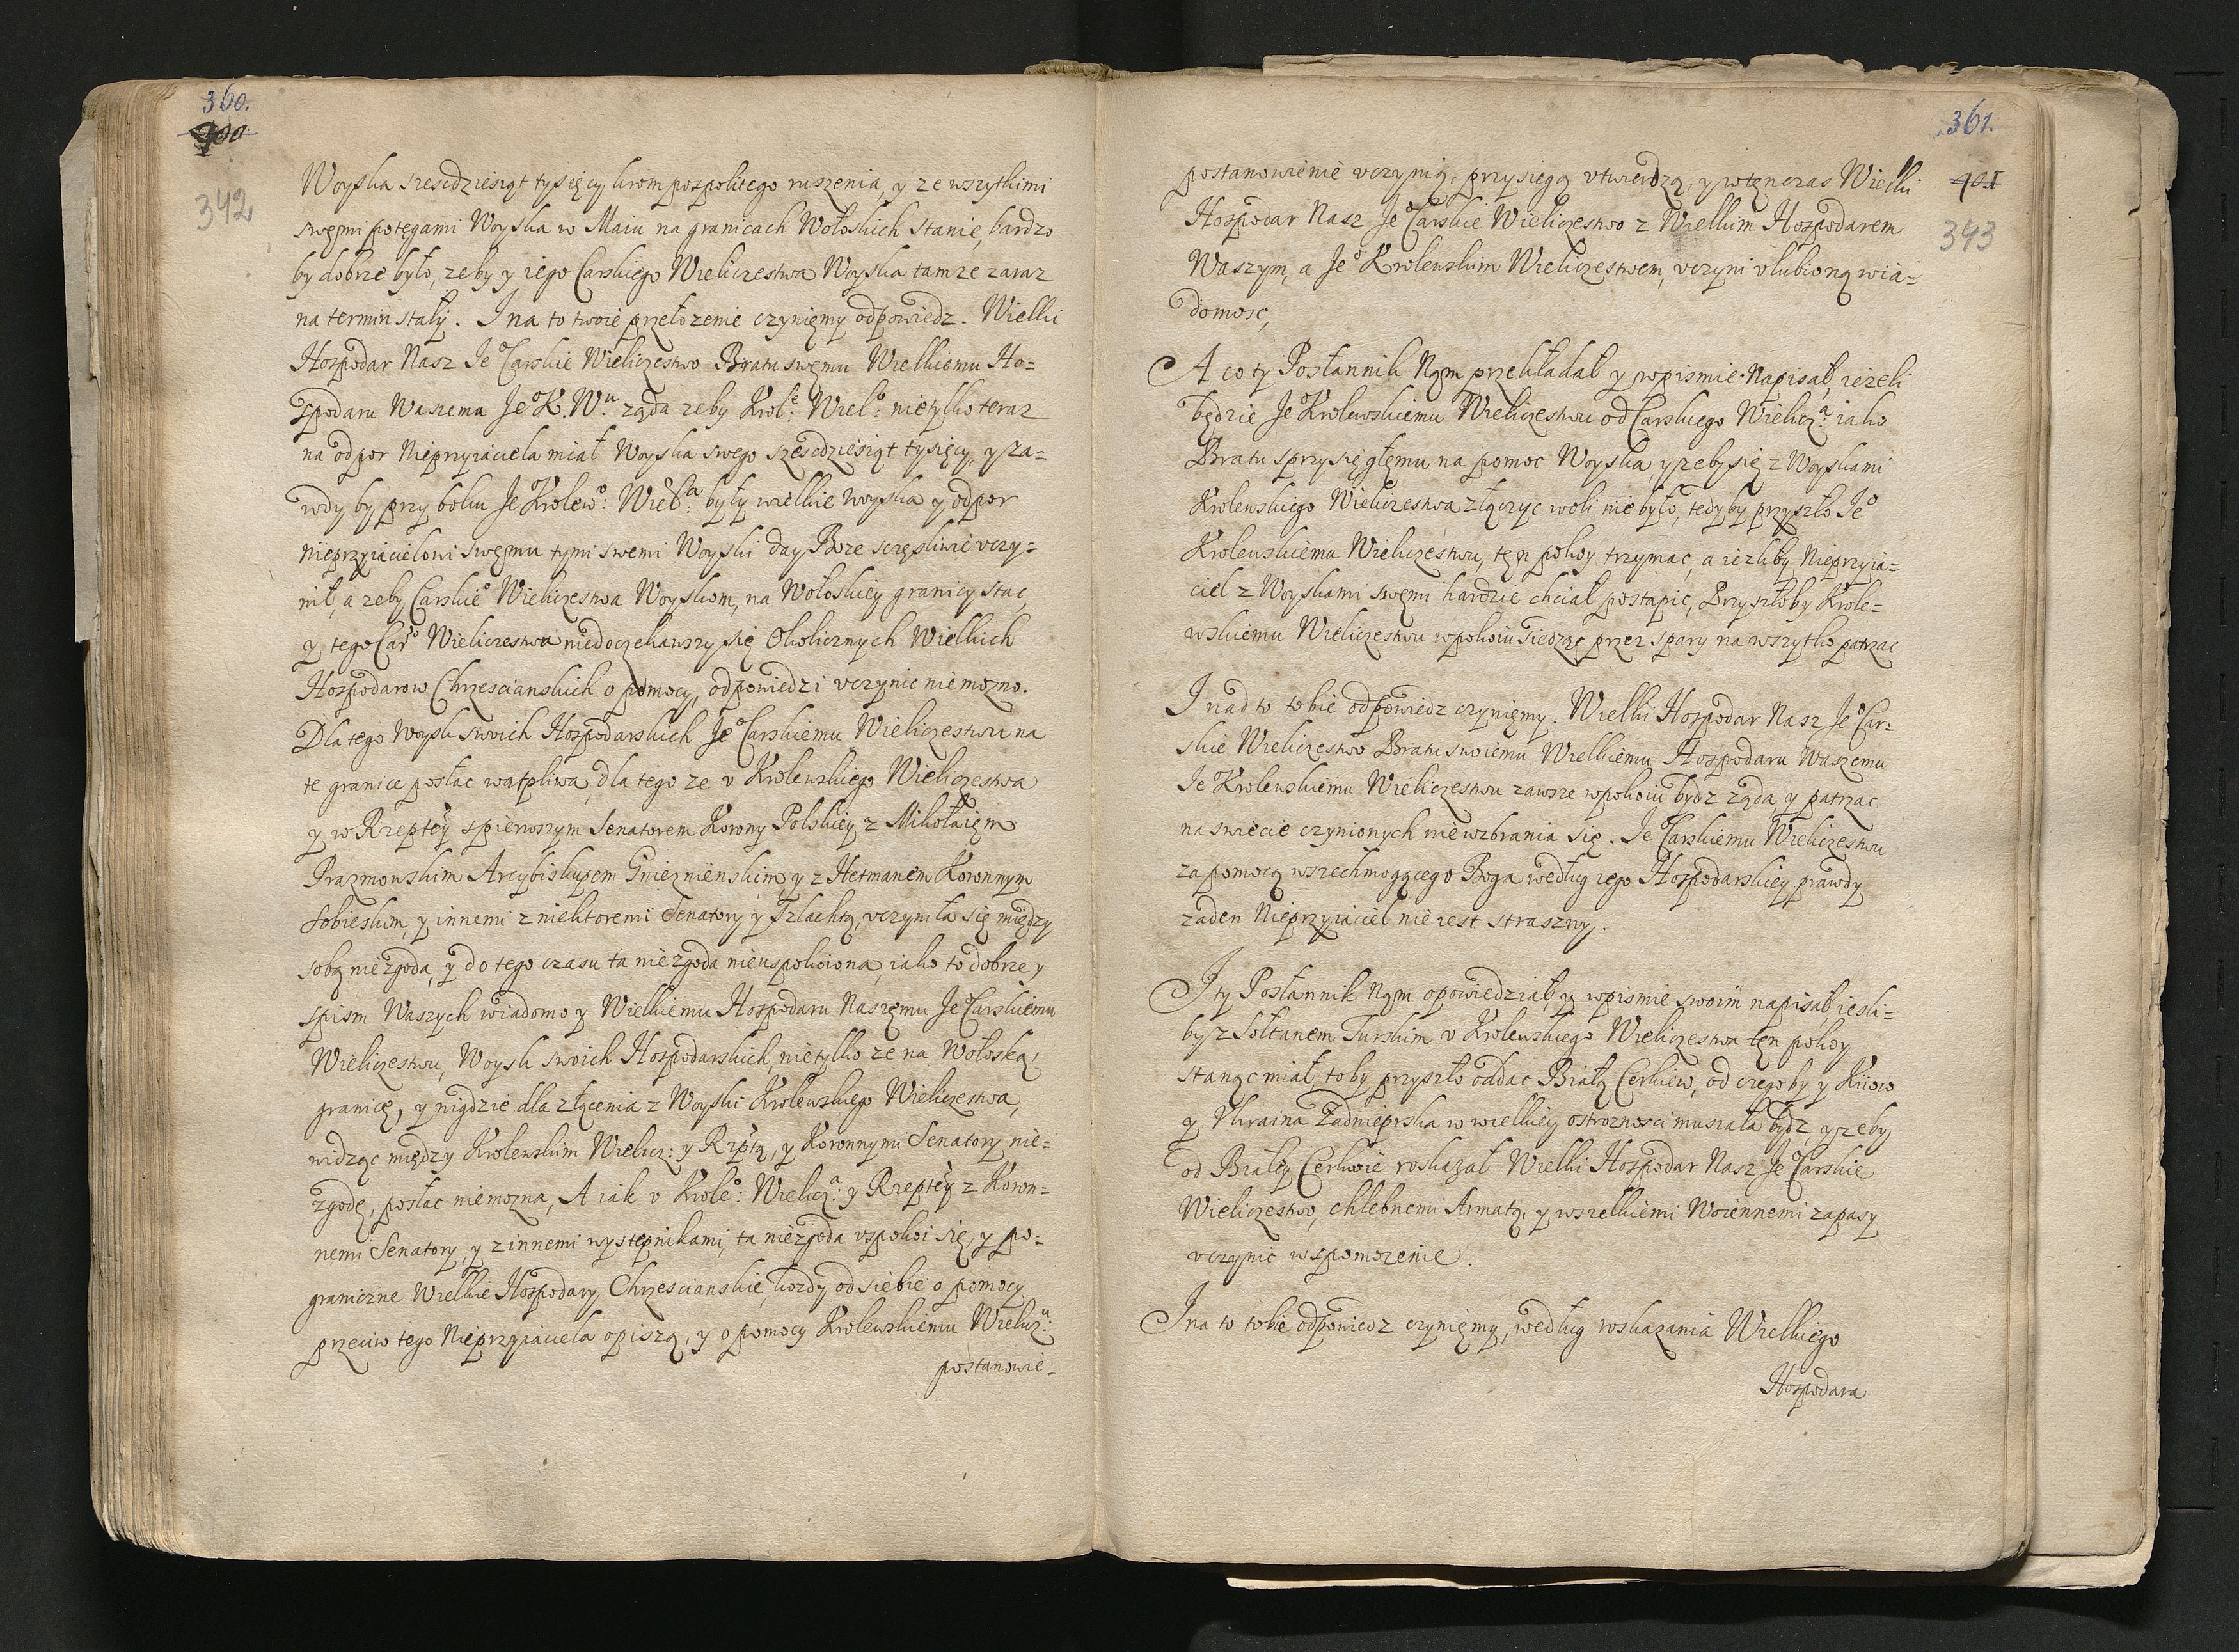 360.
400.
342
Woyska szescdziesiąt tysięcy krom pospolitego ruszenia, y ze wszytkimi
swęmi potęgami Woyska w Maiu na granicach Wołoskich stanie, bardzo
by dobrze było, zeby y iego Carskiego Wieliczestwa Woyska tamze zaraz
na termin stały. I na to twoie przełozenie czynięmy odpowiedz. Wielki
Hospodar Nasz Je° Carskie Wieliczestwo Bratu swęmu Wielkiemu Ho-
spodaru Waszemu Je° K. W.u ząda zeby Krol:e Wiel:o nietylko teraz
na odpor Nieprzyiaciela miał Woyska swego szescdziesiąt tysięcy, y za-
wdy by przy boku Je° Krolew:o Wiel:a były wielkie woyska y odpor
nieprzyiacielowi swęmu tymi swemi Woyski day Boze sczęsliwie vczy-
nił, a zeby Carskie° Wieliczestwa Woyskom, na Wołoskiey granicy stac,
y tego Car° Wieliczestwa niedoczekawszy się Okolicznych Wielkich
Hospodarow Chrzescianskich o pomocy, odpowiedzi vczynic niemozno.
Dla tego Woysk swoich Hospodarskich Je° Carskiemu Wieliczestwu na
te granice posłac wątpliwa, dla tego ze v Krolewskiego Wieliczestwa
y w Rzeptey spierwszym Senatorem Korony Polskiey z Mikołaięm
Prazmowskim Arcybiskupem Gnieznienskim y z Hetmanem Koronnym
Sobieskim, y innemi z niektoremi Senatory y Szlachtą, vczyniła się między
sobą niezgoda, y do tego czasu ta niezgoda nieuspokoiona, iako to dobrze y
spism Waszych wiadomo y Wielkiemu Hospodaru Naszęmu Je° Carskiemu
Wieliczestwu, Woysk swoich Hospodarskich, nietylko ze na Wołoską
granicę, y nigdzie dla złączenia z Woyski Krolewskiego Wieliczestwa,
widząc między Krolewskim Wielicz: y Rzptą, y Koronnymi Senatory nie-
zgodę, posłac niemozna, A iak v Krole:o Wielicz:a y Rzeptey z Koron-
nemi Senatory, y z innemi występnikami, ta niezgoda vspokoi się, y po-
graniczne Wielkie Hospodary Chrzescianskie, kozdy od siebie o pomocy
przeciw tego Nieprzyiaciela opiszą, y o pomocy Krolewskiemu Wielicz:u
postanowie-
361.
401
343
postanowienie vczynią, przysięgą vtwierdzą, y wtęnczas Wielki
Hospodar Nasz Je° Carskie Wieliczestwo z Wielkim Hospodarem
Waszym, a Je° Krolewskim Wieliczestwem, vczyni vlubioną wia-
domosc,
A co ty Posłannik Nąm przekładał y wpismie Napisał, iezeli
będzie Je° Krolewskiemu Wieliczestwu od Carskiego Wielicz:a iako
Bratu sprzysięgłęmu na pomoc Woyska, y zeby się z Woyskami
Krolewskiego Wieliczestwa złączyc woli nie było, tedy by przyszło Je°
Krolewskiemu Wieliczestwu, tęn pokoy trzymac, a iezliby Nieprzyia-
ciel z Woyskami swęmi hardzie chciał postąpic, Przyszłoby Krole-
wskiemu Wieliczestwu wpokoiu siedząc przez spary na wszytko patrzac
I nad to tobie odpowiedz czynięmy. Wielki Hospodar Nasz Je° Car-
skie Wieliczestwo Bratu swoiemu Wielkiemu Hospodaru Waszemu
Je° Krolewskiemu Wieliczestwu zawsze wpokoiu bydz ząda, y patrzac
na swiecie czynionych niewzbrania się. Je° Carskiemu Wieliczestwu
za pomocą wszechmogącego Boga według iego Hospodarskiey prawdy
zaden Nieprzyiaciel nie iest straszny.
I ty Posłannik Nąm opowiedział, y wpismie swoim napisał, iesli-
by z Sołtanem Turskim v Krolewskiego Wieliczestwa tęn pokoy
stanąc miał, to by przyszło oddac Białą Cerkiew, od czego by y Kiiow
y Vkraina Zadnieprska w wielkiey ostroznosci musiała bydz, y zeby
od Białey Cerkwie roskazał Wielki Hospodar Nasz Je° Carskie
Wieliczestwo, chlebnemi Armatą, y wszelkiemi Woiennemi zapasy
vczynic wspomozenie.
I na to tobie odpowiedz czynięmy, według roskazania Wielkiego
Hospodara